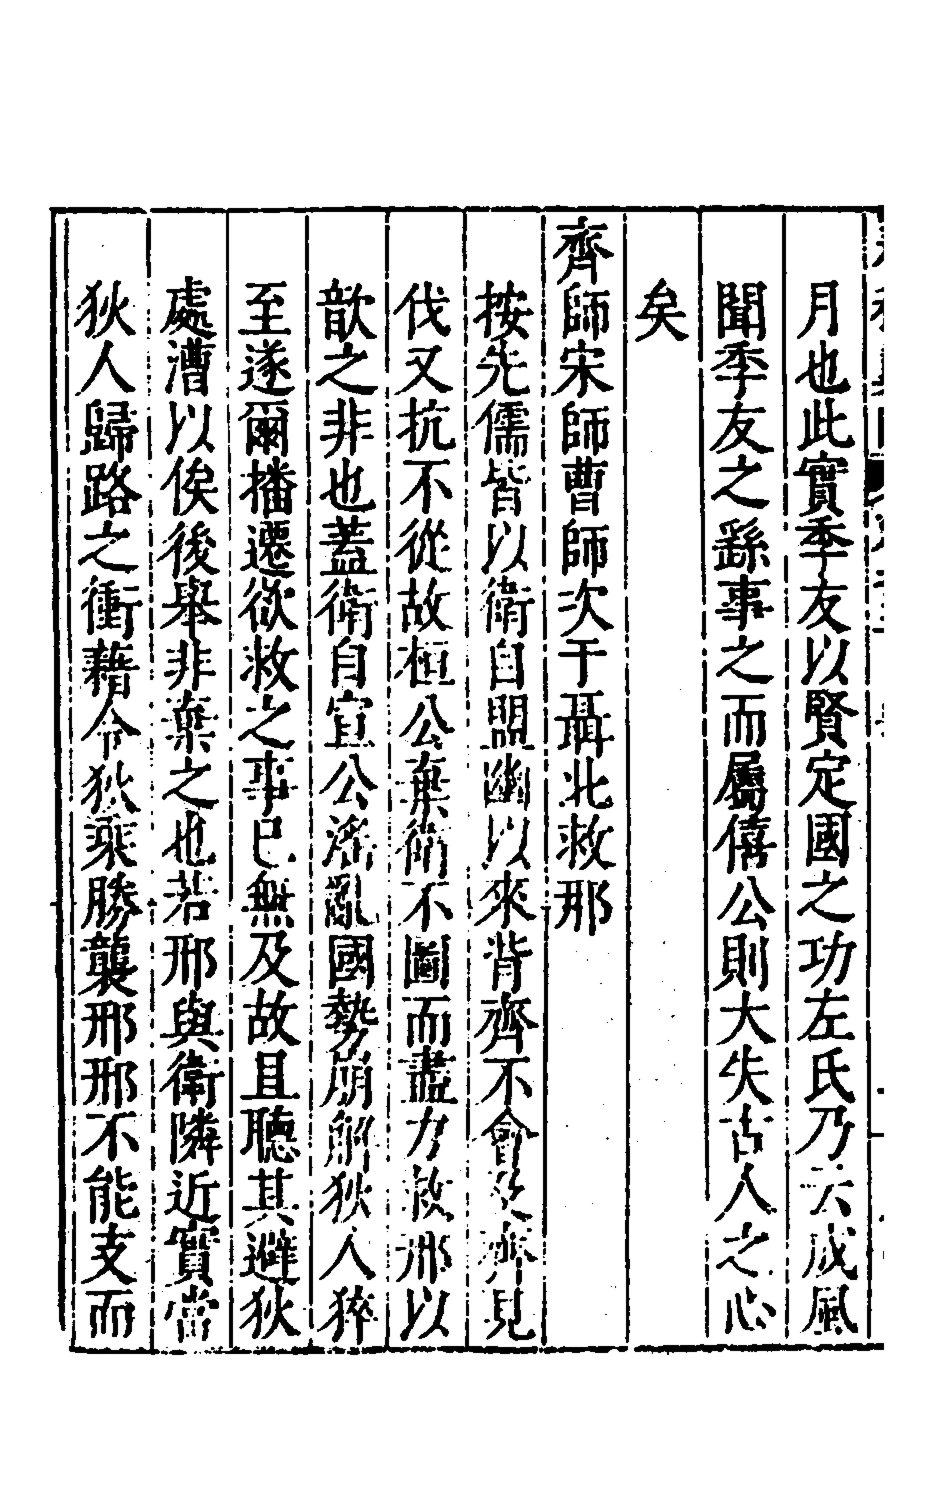 月也此實季友以賢定國之功左氏乃云成風
聞季友之繇事之而屬僖公則大失古人之心
矣
齊師宋師曹師次于聶北救邢
按先儒皆以衛自盟幽以來背齊不會及齊見
伐又抗不從故桓公棄衛不圖而盡力救邢以
歆之非也蓋衛自宣公滛亂國勢崩解狄人猝
至遂爾播遷欲救之事巳無及故且聽其避狄
處漕以俟後舉非棄之也若邢與衛隣近實當
狄人歸路之衝藉令狄乘勝襲邢邢不能支而